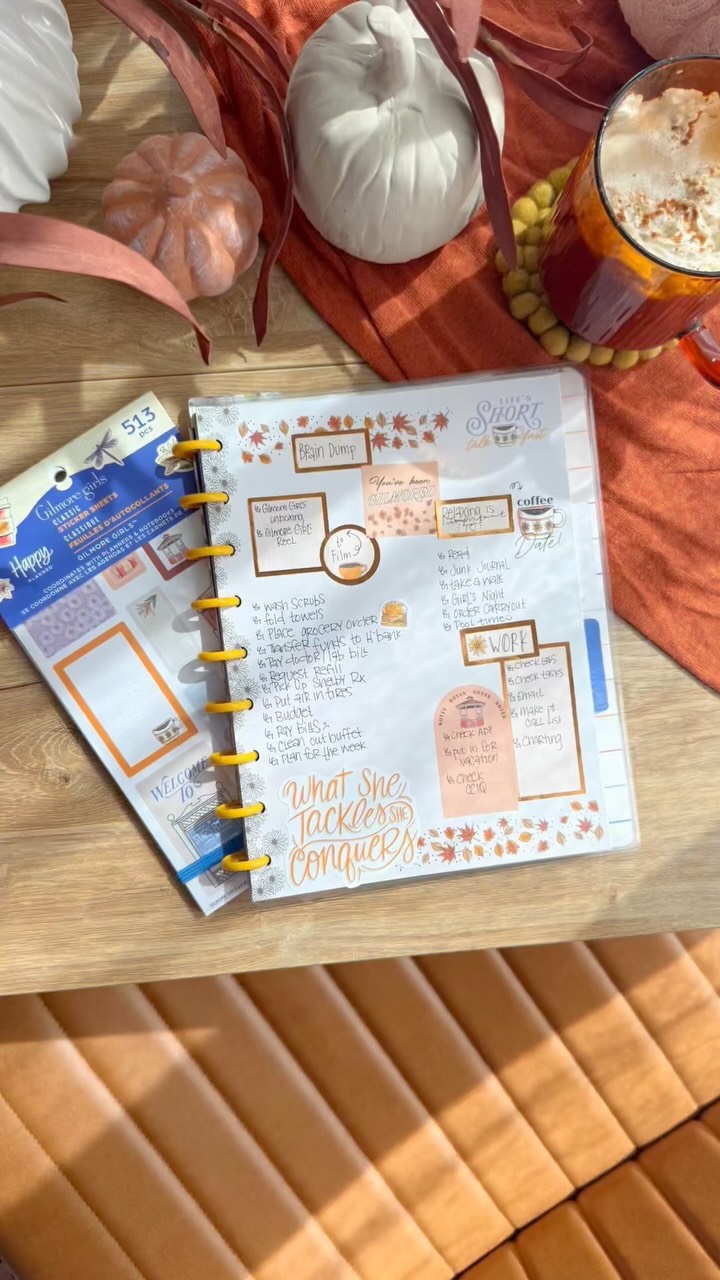 513
pcs
Gilmore girls
CLASSIC
STICKER SHEETS
CLASSIQUE
FEUILLES D'AUTOCOLLANTS
GILMORE GIRLS™
COORDINATES WITH PLANNERS & NOTEBOOKS
SE COORDONNE AVEC LES AGENDAS ET LES CARNETS DE
Happy
PLANNER®
WELCOME
TO
Brain Dump
LIFE'S
SHORT
talk fast
You've been
GILMORED
Gilmore Girls
unboxing
Gilmore Girls
Reel
to
Film
Relaxing is
coffee
Date!
Read
Junk Journal
take a walk
Girl's Night
order carryout
Pool time
wash scrubs
fold towels
Place grocery order
Transfer funds to H bank
Pay doctor/lab bill
Request Refill
Pick up Shelby Rx
Put air in tires
Budget
Pay bills
Clean out buffet
Plan for the week
WORK
check labs
check tasks
Email
make pt.
call list
Charting
NOTES NOTES NOTES NOTES
check ADP
put in for
vacation
check
What She
Tackles (SHE)
Conquers